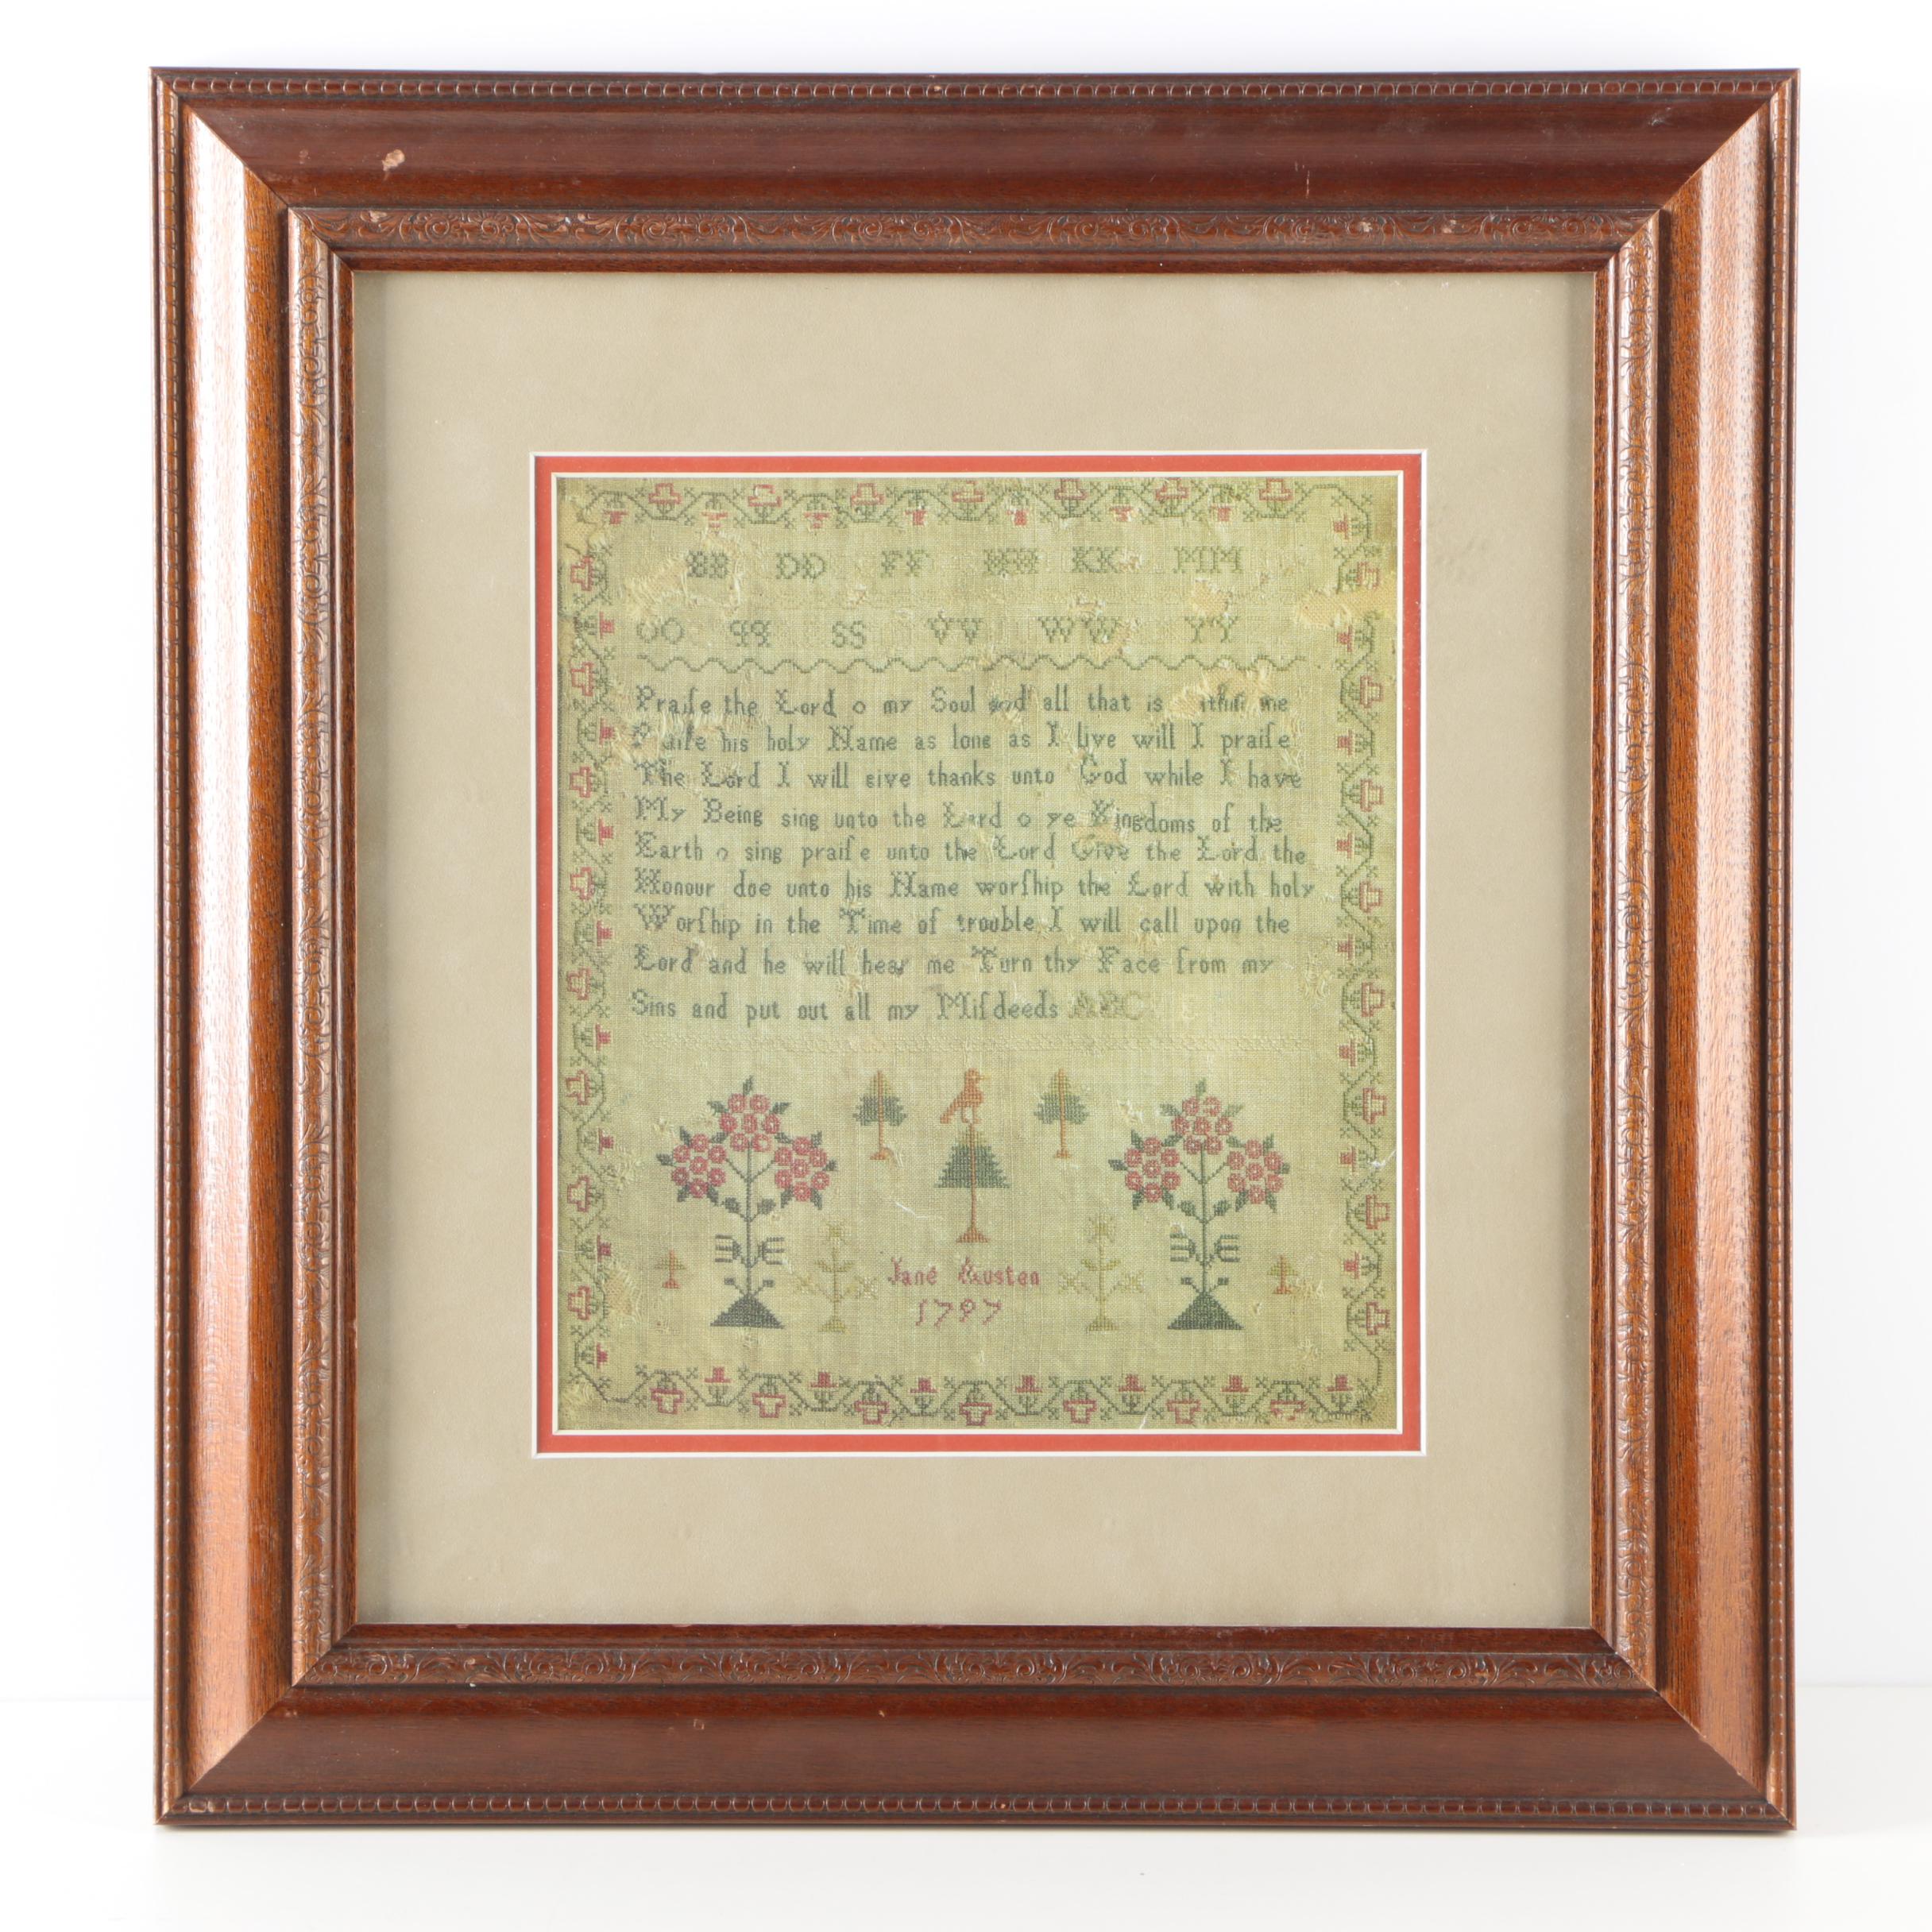 BB DD FF HH KK MM
OO QQ SS VV WW YY
Praiſe the Lord o my Soul and all that is within me
Praiſe his holy Name as long as I live will I praiſe
The Lord I will give thanks unto God while I have
My Being sing unto the Lord o ye Kingdoms of the
Earth o sing praiſe unto the Lord Give the Lord the
Honour doe unto his Name worſhip the Lord with holy
Worſhip in the Time of trouble I will call upon the
Lord and he will hear me Turn thy Face from my
Sins and put out all my Miſdeeds ABC
Jane Austen
1797